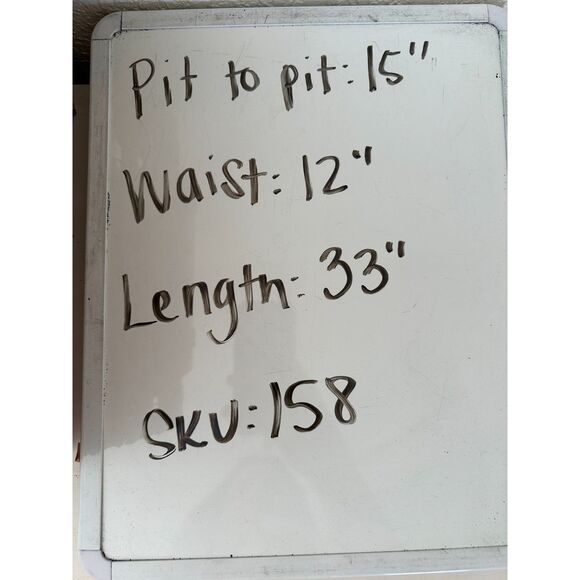 Pit to pit: 15"
Waist: 12"
Length: 33"
SKU: 158